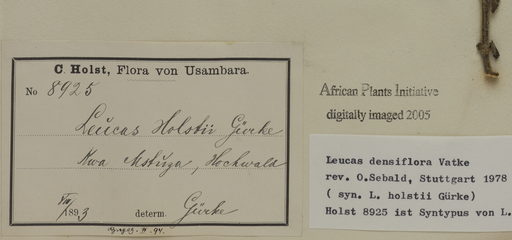 C. Holst, Flora von Usambara.
No 8925
Leucas Holstii Gürke
Kwa Mstuza, Hochwald
VIII 1893 determ. Gürke
African Plants Initiative
digitally imaged 2005
Leucas densiflora Vatke
rev. O.Sebald, Stuttgart 1978
( syn. L. holstii Gürke)
Holst 8925 ist Syntypus von L.